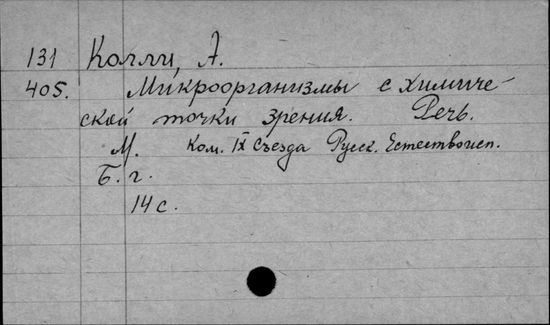 131 Колли, А.
405. Микроорганизмы с химиче-
ской точки зрения. Речь.
М. Ком. IX Съезда Русск. Естествоисп.
Б. г.
14 с.